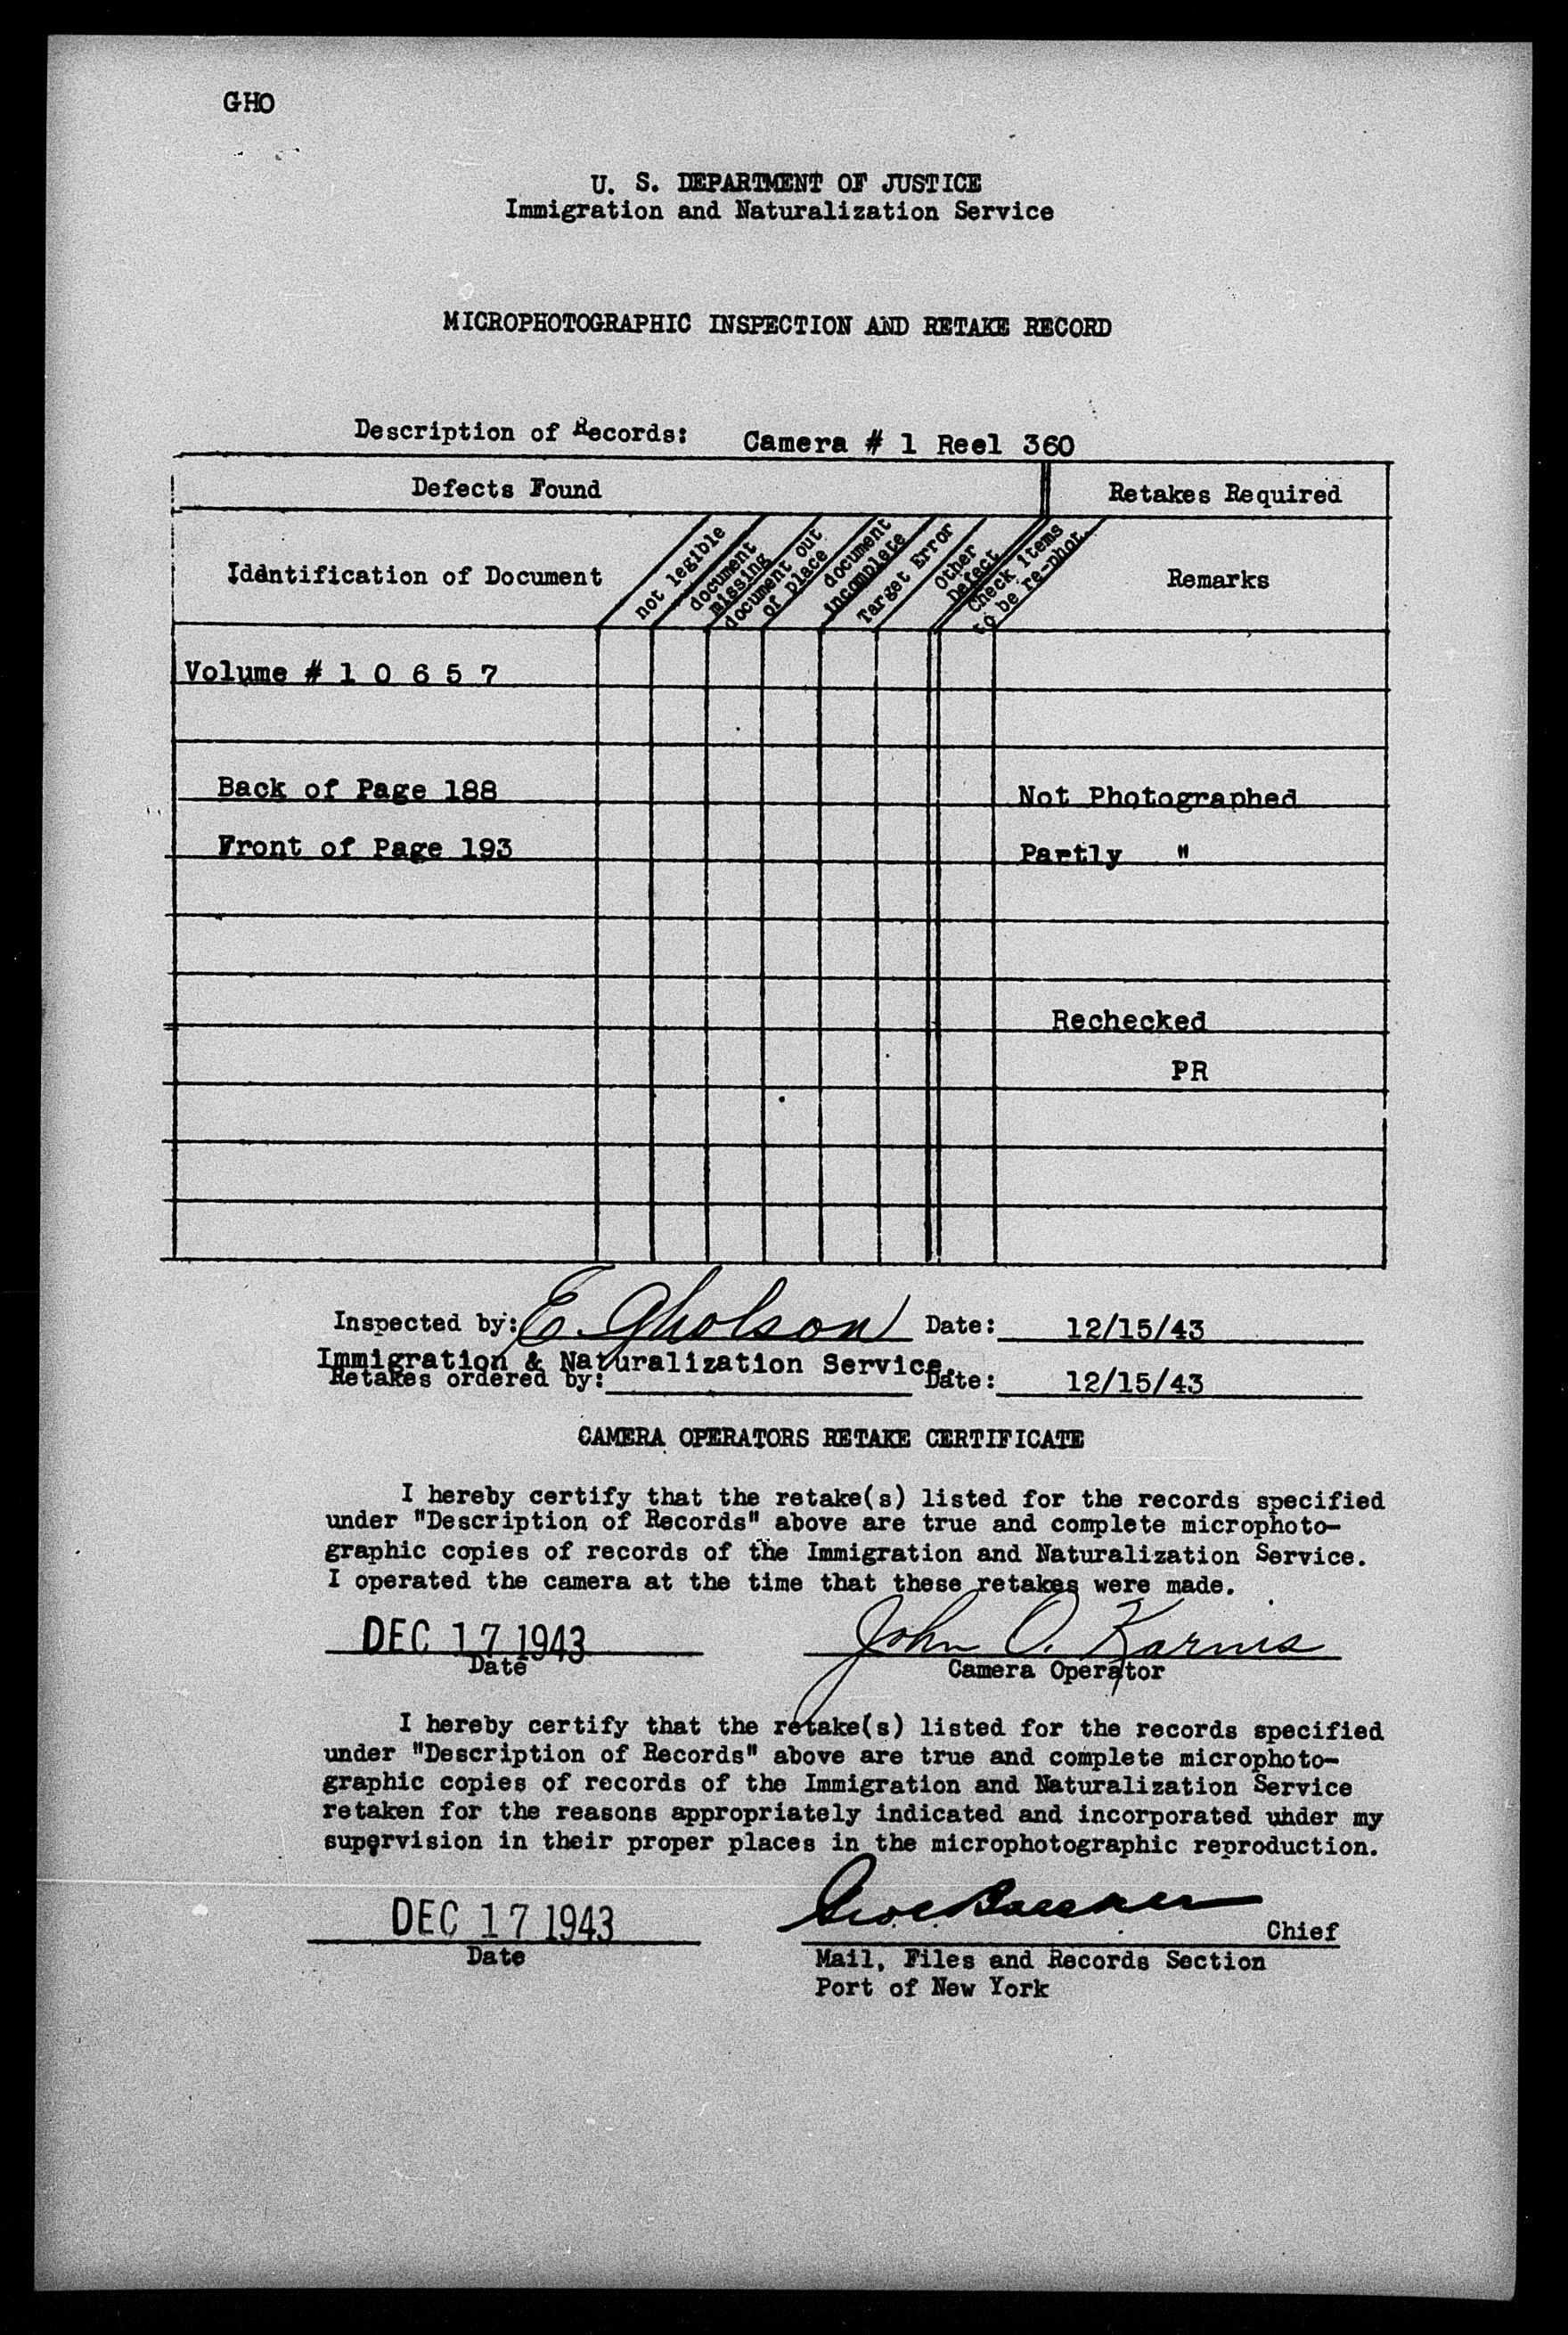 GHO
U. S. DEPARTMENT OF JUSTICE
Immigration and Naturalization Service
MICROPHOTOGRAPHIC INSPECTION AND RETAKE RECORD
Description of Records: Camera # 1 Reel 360
Defects Found
Retakes Required
Identification of Document
not legible
document missing
document out of place
document incomplete
Target Error
Other Defect
Check items to be re-phot.
Remarks
Volume # 1 0 6 5 7
Back of Page 188 Not Photographed
Front of Page 193 Partly "
Rechecked
PR
Inspected by: E. Gholson Date: 12/15/43
Immigration & Naturalization Service.
Retakes ordered by: Date: 12/15/43
CAMERA OPERATORS RETAKE CERTIFICATE
I hereby certify that the retake(s) listed for the records specified
under "Description of Records" above are true and complete microphoto-
graphic copies of records of the Immigration and Naturalization Service.
I operated the camera at the time that these retakes were made.
DEC 17 1943 John O.
Date Camera Operator
I hereby certify that the retake(s) listed for the records specified
under "Description of Records" above are true and complete microphoto-
graphic copies of records of the Immigration and Naturalization Service
retaken for the reasons appropriately indicated and incorporated under my
supervision in their proper places in the microphotographic reproduction.
DEC 17 1943 Chief
Date Mail, Files and Records Section
Port of New York